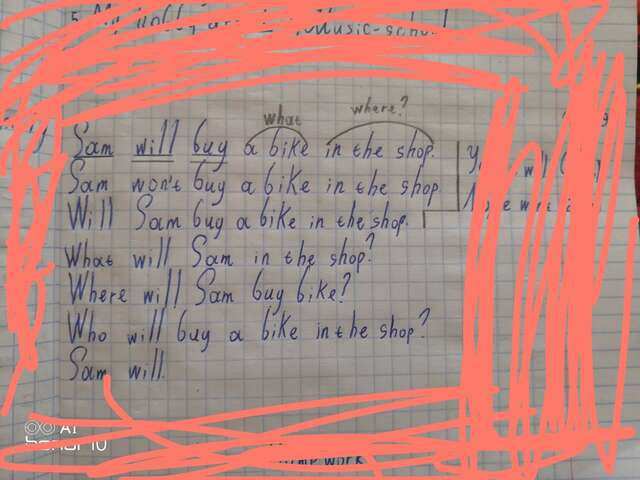 what where?
Sam will buy a bike in the shop.
Sam won't buy a bike in the shop
Will Sam buy a bike in the shop.
What will Sam in the shop?
Where will Sam buy bike?
Who will buy a bike in the shop?
Sam will.
AI
work